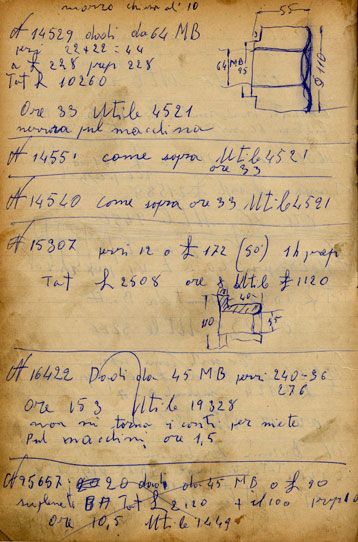 nuovo chiara d' 10
N 14529 dadi da 64 MB
pezzi 22+22 = 44
a £ 228 prep 228
Tot £ 10260
55
64 MB
95
Ø 110
Ore 33 Utile 4521
nuova pul macchina
N 1455 come sopra Utile 4521
ore 33
N 14540 come sopra ore 33 Utile 4521
N 15307 pezzi 12 a £ 172 (50') 1h prep
Tot £ 2508 ore 8 Utile £ 1120
40
110
45
N 16422 Dadi da 45 MB pezzi 240-36
276
Ore 153 Utile 19328
non mi torna i conti per niete
Pul macchini ore 1,5
N 95657 20 dadi da 45 MB a £ 90
Tot £ 2120 + £ 100
Ore 10,5 Utile 1449